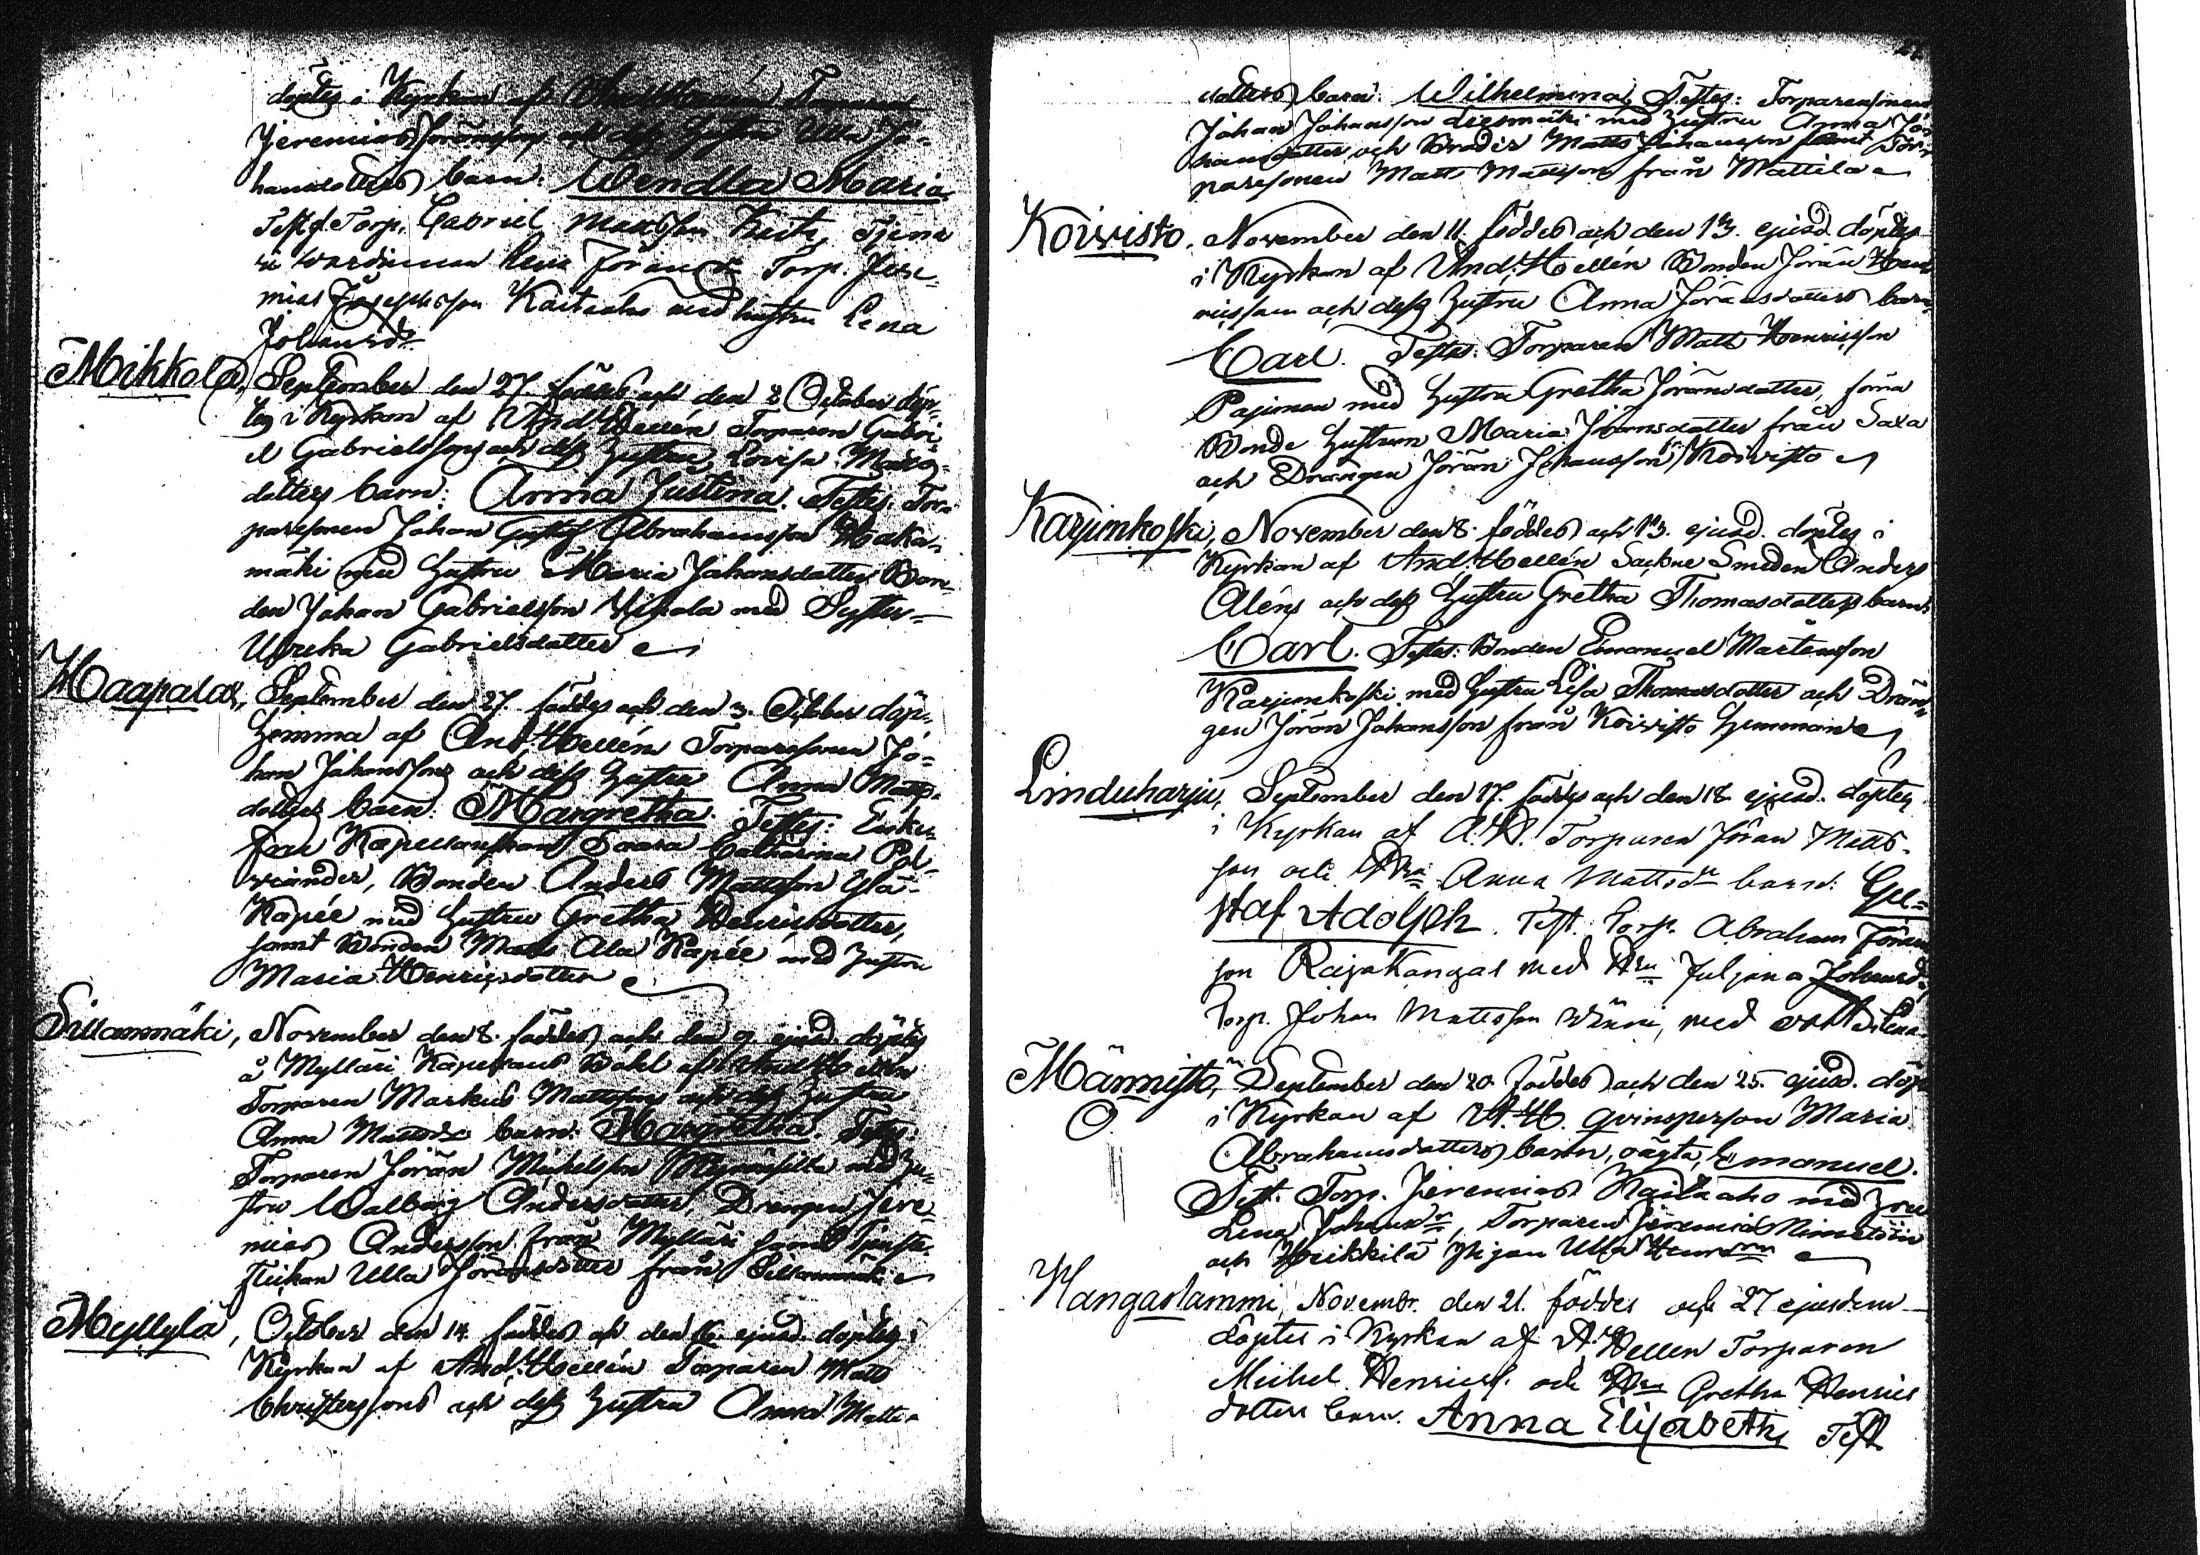 döptes i Kyrkan af And. Hellén Torparen
Jeremias Jöransson och dess Hustru Ulla Jo-
hansdotters barn: Wendla Maria
Test. Torp. Gabriel Mattsson
Jöransdr Torp. Jere-
mias Josephsson Kaitaaho med hustru Lena
Johansdr
Mikkola, September den 27. föddes och den 2 October döp-
tes i Kyrkan af And. Hellén Torparen Gabri-
el Gabrielssons och dess Hustru Lovisa
dotters barn: Anna Justina. Testes: Tor-
paresonen Johan Gustaf Abrahamsson Haka-
mäki med Hustru Maria Johansdotter Bon-
den Johan Gabrielsson med Syster
Ulrika Gabrielsdotter
Haapala, September den 27. föddes och den 3. October döp-
hemma af And. Hellén Torparesonen Jo-
han Johanssons och dess Hustru Anna Matts-
dotters barn: Margretha. Testes: Enke-
fru Kapellanskan Catharina Pol-
viander, Bonden Anders Mattsson Ylä-
Kapée med Hustru Gretha Henricsdotter,
samt Bonden Matts Ala Kapée med Hustru
Maria Henricsdotter
Sillanmäki, November den 8. föddes och den 9. ejusd. döptes
å Mylläri Kapellans Bohl af And. Hellén
Torparen Markus Mattssons och dess Hustru
Anna Mattsdr barn: Margretha. Testes:
Torparen Jöran Michelsson med Hu-
stru Walborg Andersdotter, Drengen Jere-
mias Andersson från Mylläri samt Tjenste-
flickan Ulla Jöransdotter från Sillanmäki
Myllylä, October den 14. föddes och den 16. ejusd. döptes i
Kyrkan af And. Hellén Torparen Matts
Christerssons och dess Hustru Anna Matts-
dotters barn: Wilhelmina, Testes: Torparesonen
Johan Johansson med Hustru Anna Jo-
hansdotter och Broder Matts Johansson samt Tor-
paresonen Matts Mattsson från Mattila
Koivisto, November den 11. föddes och den 13. ejusd. döptes
i Kyrkan af And. Hellén Bonden Jöran Hen-
ricsson och dess Hustru Anna Jöransdotters barn
Carl. Testes: Torparen Matts Henricsson
Pajunen med Hustru Gretha Jöransdotter, förra
Bonde Hustrun Maria Jöransdotter från Saxa
och Drängen Jöran Johansson Koivisto
Karjunkoski, November den 8. föddes och 13. ejusd. döptes i
Kyrkan af And. Hellén Sockne Smeden Anders
Aléns och dess Hustru Gretha Thomasdotters barn:
Carl. Testes: Bonden Emanuel Mårtensson
Karjunkoski med Hustru Lisa Thomasdotter och Drän-
gen Jöran Johansson från Koivisto hemman
Linduharju, September den 17. föddes och den 18. ejusd. döptes
i Kyrkan af A. H. Torparen Jöran Matts-
son och Hru Anna Mattsdr barn: Gu-
staf Adolph. Test. Torp. Abraham Jörans-
son Rajakangas med Hru Juliana Johansd.
Torp. Johan Mattsson med
Männistö, September den 20. föddes och den 25. ejusd. döp
i Kyrkan af A. H. qvinsperson Maria
Abrahamsdotters barn, oägta, Emanuel.
Test. Torp. Jeremias Kaitaaho med Hru
Lena Johansdr, Torparen Jeremias
och Heikkilä Pigan Ulla
Hangaslammi, Novembr. den 21. föddes och 27 ejusdem
döptes i Kyrkan af A. Hellen Torparen
Michel Henrics. och Hru Gretha Henrics
dotters barn. Anna Elisabeth, Test